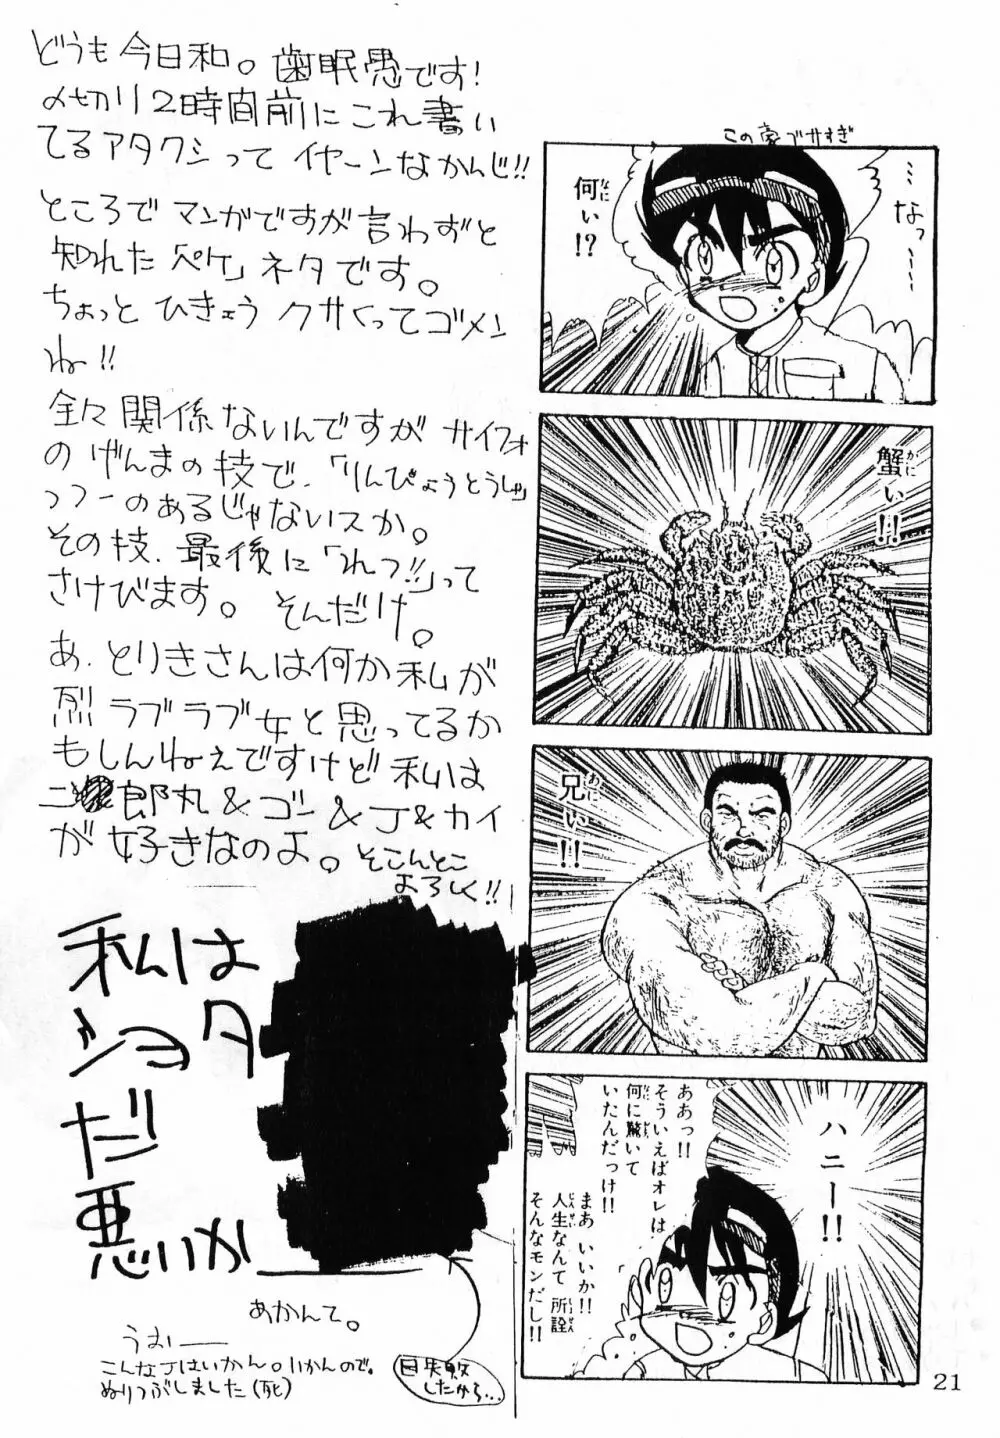 どうも今日和。歯眠愚です!
〆切り2時間前にこれ書い
てるアタクシって イヤーンなかんじ!!
ところで マンガですが言わずと
知れた「ペケ」ネタです。
ちょっと ひきょう クサくってゴメン
ね!!
全々関係ないんですが サイフォ
のげんまの技で、「りんぴょうとうしゃ」
っつーのあるじゃないスか。
その技、最後に「れつ!!」って
さけびます。 そんだけ。
あ、とりきさんは何か私が
烈ラブラブ女と思ってるか
もしんねぇですけど 私は
二郎丸&ゴン&J&カイ
が好きなのよ。そこんとこ
よろしく!!
私は
ショタ
だ
悪いか
あかんて。
うおー
こんなJはいかん。いかんので。
ぬりつぶしました(死)
目失敗
したから…
この豪ブサすぎ
…なっ…
何ぃ!?
蟹ぃ!!
兄ぃ!!
ハニー!!
ああっ!!
そういえばオレは
何に驚いて
いたんだっけ!!
まあ いいか!!
人生なんて 所詮
そんなモンだし!!
21